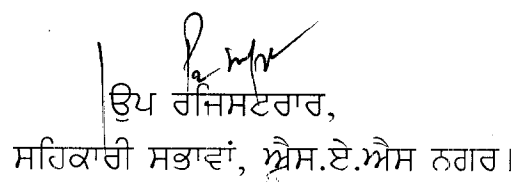 ਉਪ ਰਜਿਸਟਰਾਰ,
ਸਹਿਕਾਰੀ ਸਭਾਵਾਂ, ਐਸ.ਏ.ਐਸ ਨਗਰ।